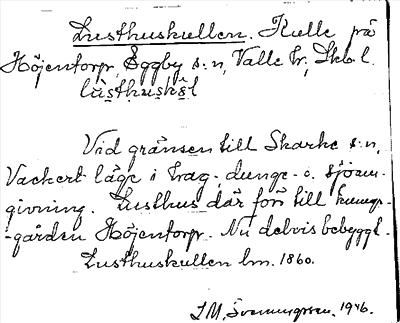 Lusthuskullen. Kulle på
Höjentorp, Eggby s:n, Valle hr, Skb l.
lùsthuskêl
Vid gränsen till Skarke s:n,
Vackert läge i hag-, dunge- o. sjöom-
givning. Lusthus där förr till kungs-
-gården Höjentorp. Nu delvis bebyggt.
Lusthuskullen lm. 1860.
I M, Svenungsson. 1946.